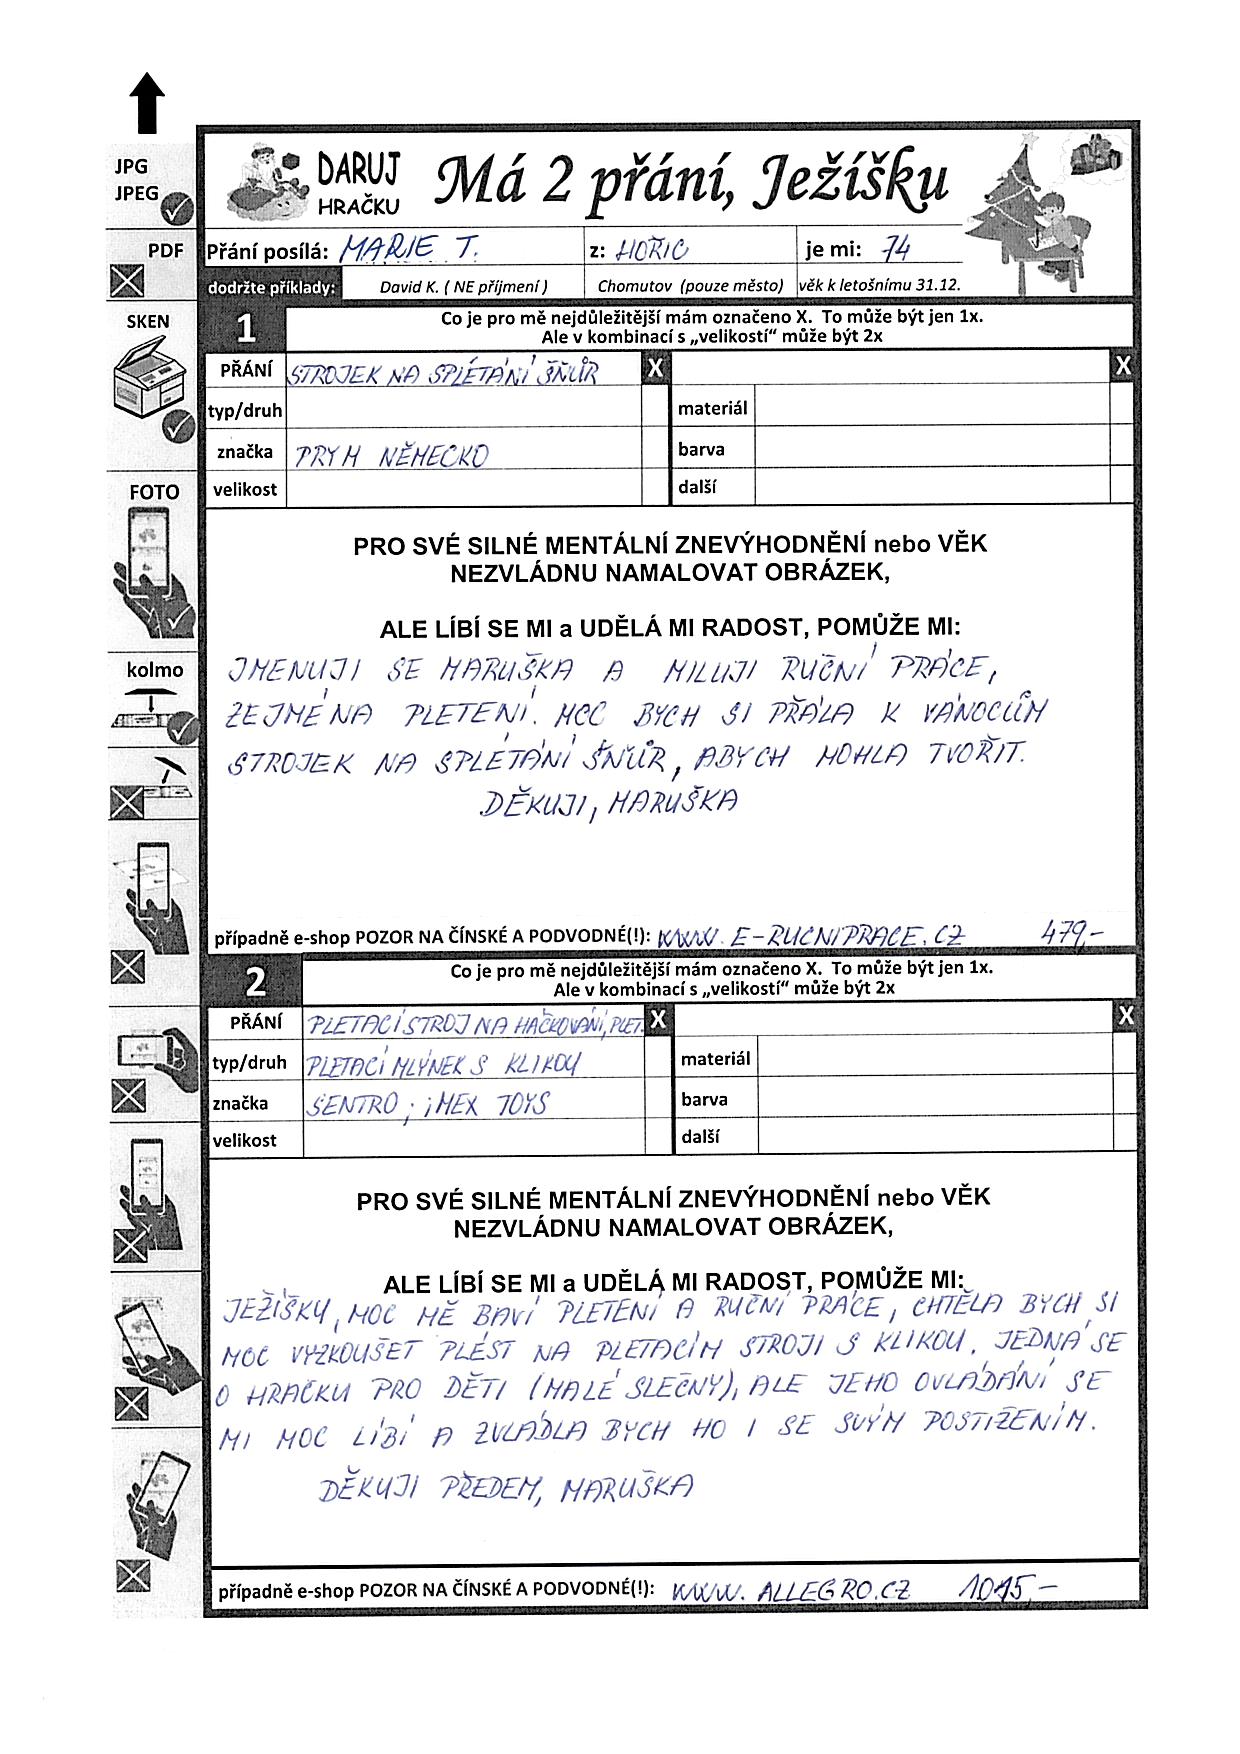 JPG
JPEG
PDF
SKEN
FOTO
kolmo
DARUJ
HRAČKU
Má 2 přání, Ježíšku
Přání posílá: MARIE T. z: HOŘIC je mi: 74
dodržte příklady: David K. ( NE příjmení ) Chomutov (pouze město) věk k letošnímu 31.12.
1
Co je pro mě nejdůležitější mám označeno X. To může být jen 1x.
Ale v kombinací s „velikostí“ může být 2x
PŘÁNÍ STROJEK NA SPLÉTÁNÍ ŠŇŮR X X
typ/druh materiál
značka PRYM NĚMECKO barva
velikost další
PRO SVÉ SILNÉ MENTÁLNÍ ZNEVÝHODNĚNÍ nebo VĚK
NEZVLÁDNU NAMALOVAT OBRÁZEK,
ALE LÍBÍ SE MI a UDĚLÁ MI RADOST, POMŮŽE MI:
JMENUJI SE MARUŠKA A MILUJI RUČNÍ PRÁCE,
ZEJMÉNA PLETENÍ. MOC BYCH SI PŘÁLA K VÁNOCŮM
STROJEK NA SPLÉTÁNÍ ŠŇŮR, ABYCH MOHLA TVOŘIT.
DĚKUJI, MARUŠKA
případně e-shop POZOR NA ČÍNSKÉ A PODVODNÉ(!): WWW. E-RUCNIPRACE. CZ 479,-
2
Co je pro mě nejdůležitější mám označeno X. To může být jen 1x.
Ale v kombinací s „velikostí“ může být 2x
PŘÁNÍ PLETACÍ STROJ NA HÁČKOVÁNÍ, PLET. X X
typ/druh PLETACÍ MLÝNEK S KLIKOU materiál
značka SENTRO ; iMEX TOYS barva
velikost další
PRO SVÉ SILNÉ MENTÁLNÍ ZNEVÝHODNĚNÍ nebo VĚK
NEZVLÁDNU NAMALOVAT OBRÁZEK,
ALE LÍBÍ SE MI a UDĚLÁ MI RADOST, POMŮŽE MI:
JEŽÍŠKU, MOC MĚ BAVÍ PLETENÍ A RUČNÍ PRÁCE, CHTĚLA BYCH SI
MOC VYZKOUŠET PLÉST NA PLETACÍM STROJI S KLIKOU. JEDNÁ SE
O HRAČKU PRO DĚTI (MALÉ SLEČNY), ALE JEHO OVLÁDÁNÍ SE
MI MOC LÍBÍ A ZVLÁDLA BYCH HO I SE SVÝM POSTIŽENÍM.
DĚKUJI PŘEDEM, MARUŠKA
případně e-shop POZOR NA ČÍNSKÉ A PODVODNÉ(!): WWW. ALLEGRO.CZ